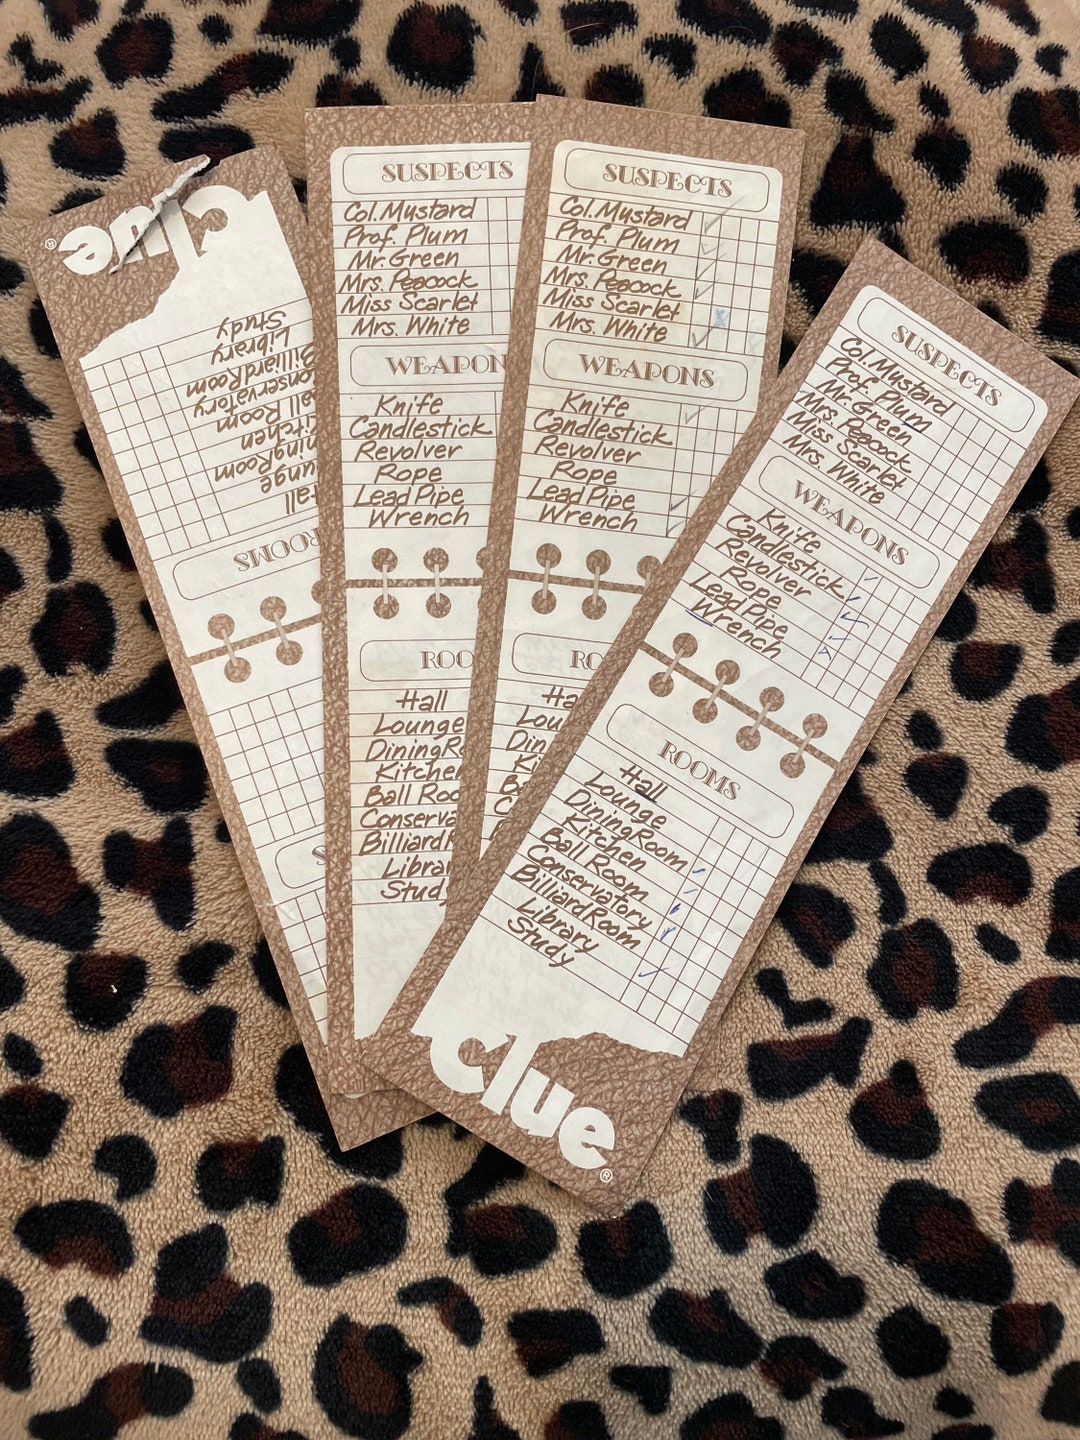 Clue
®
Study
Library
Billiard Room
Conservatory
Ball Room
Kitchen
Dining Room
Lounge
Hall
ROOMS
SUSPECTS
Col. Mustard
Prof. Plum
Mr. Green
Mrs. Peacock
Miss Scarlet
Mrs. White
WEAPON
Knife
Candlestick
Revolver
Rope
Lead Pipe
Wrench
ROO
Hall
Lounge
Dining Ro
Kitchen
Ball Roo
Conserva
Billiard R
Librar
Study
SUSPECTS
Col. Mustard
Prof. Plum
Mr. Green
Mrs. Peacock
Miss Scarlet
Mrs. White
WEAPONS
Knife
Candlestick
Revolver
Rope
Lead Pipe
Wrench
RO
Ha
Lou
Din
Ki
Ba
C
SUSPECTS
Col. Mustard
Prof. Plum
Mr. Green
Mrs. Peacock
Miss Scarlet
Mrs. White
WEAPONS
Knife
Candlestick
Revolver
Rope
Lead Pipe
Wrench
ROOMS
Hall
Lounge
Dining Room
Kitchen
Ball Room
Conservatory
Billiard Room
Library
Study
Clue
®